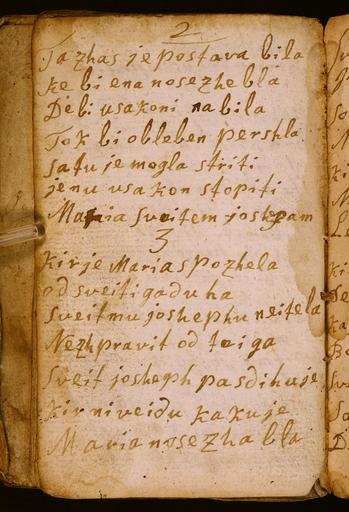 2
Ta zhas je postava bila
ke bi ena nosezhe bla
De bi usakoni na bila
Tok bi obleben pershla
Satu je mogla striti
jenu usa kon stopiti
Maria sveitem joshepam
3
Kir je Maria spozhela
od sveitiga duha
Sveitmu joshephu neitela
Nezh pravit od teiga
Sveit josheph pa sdihuje
Kir ni veidu kaku je
Maria nosezha bla